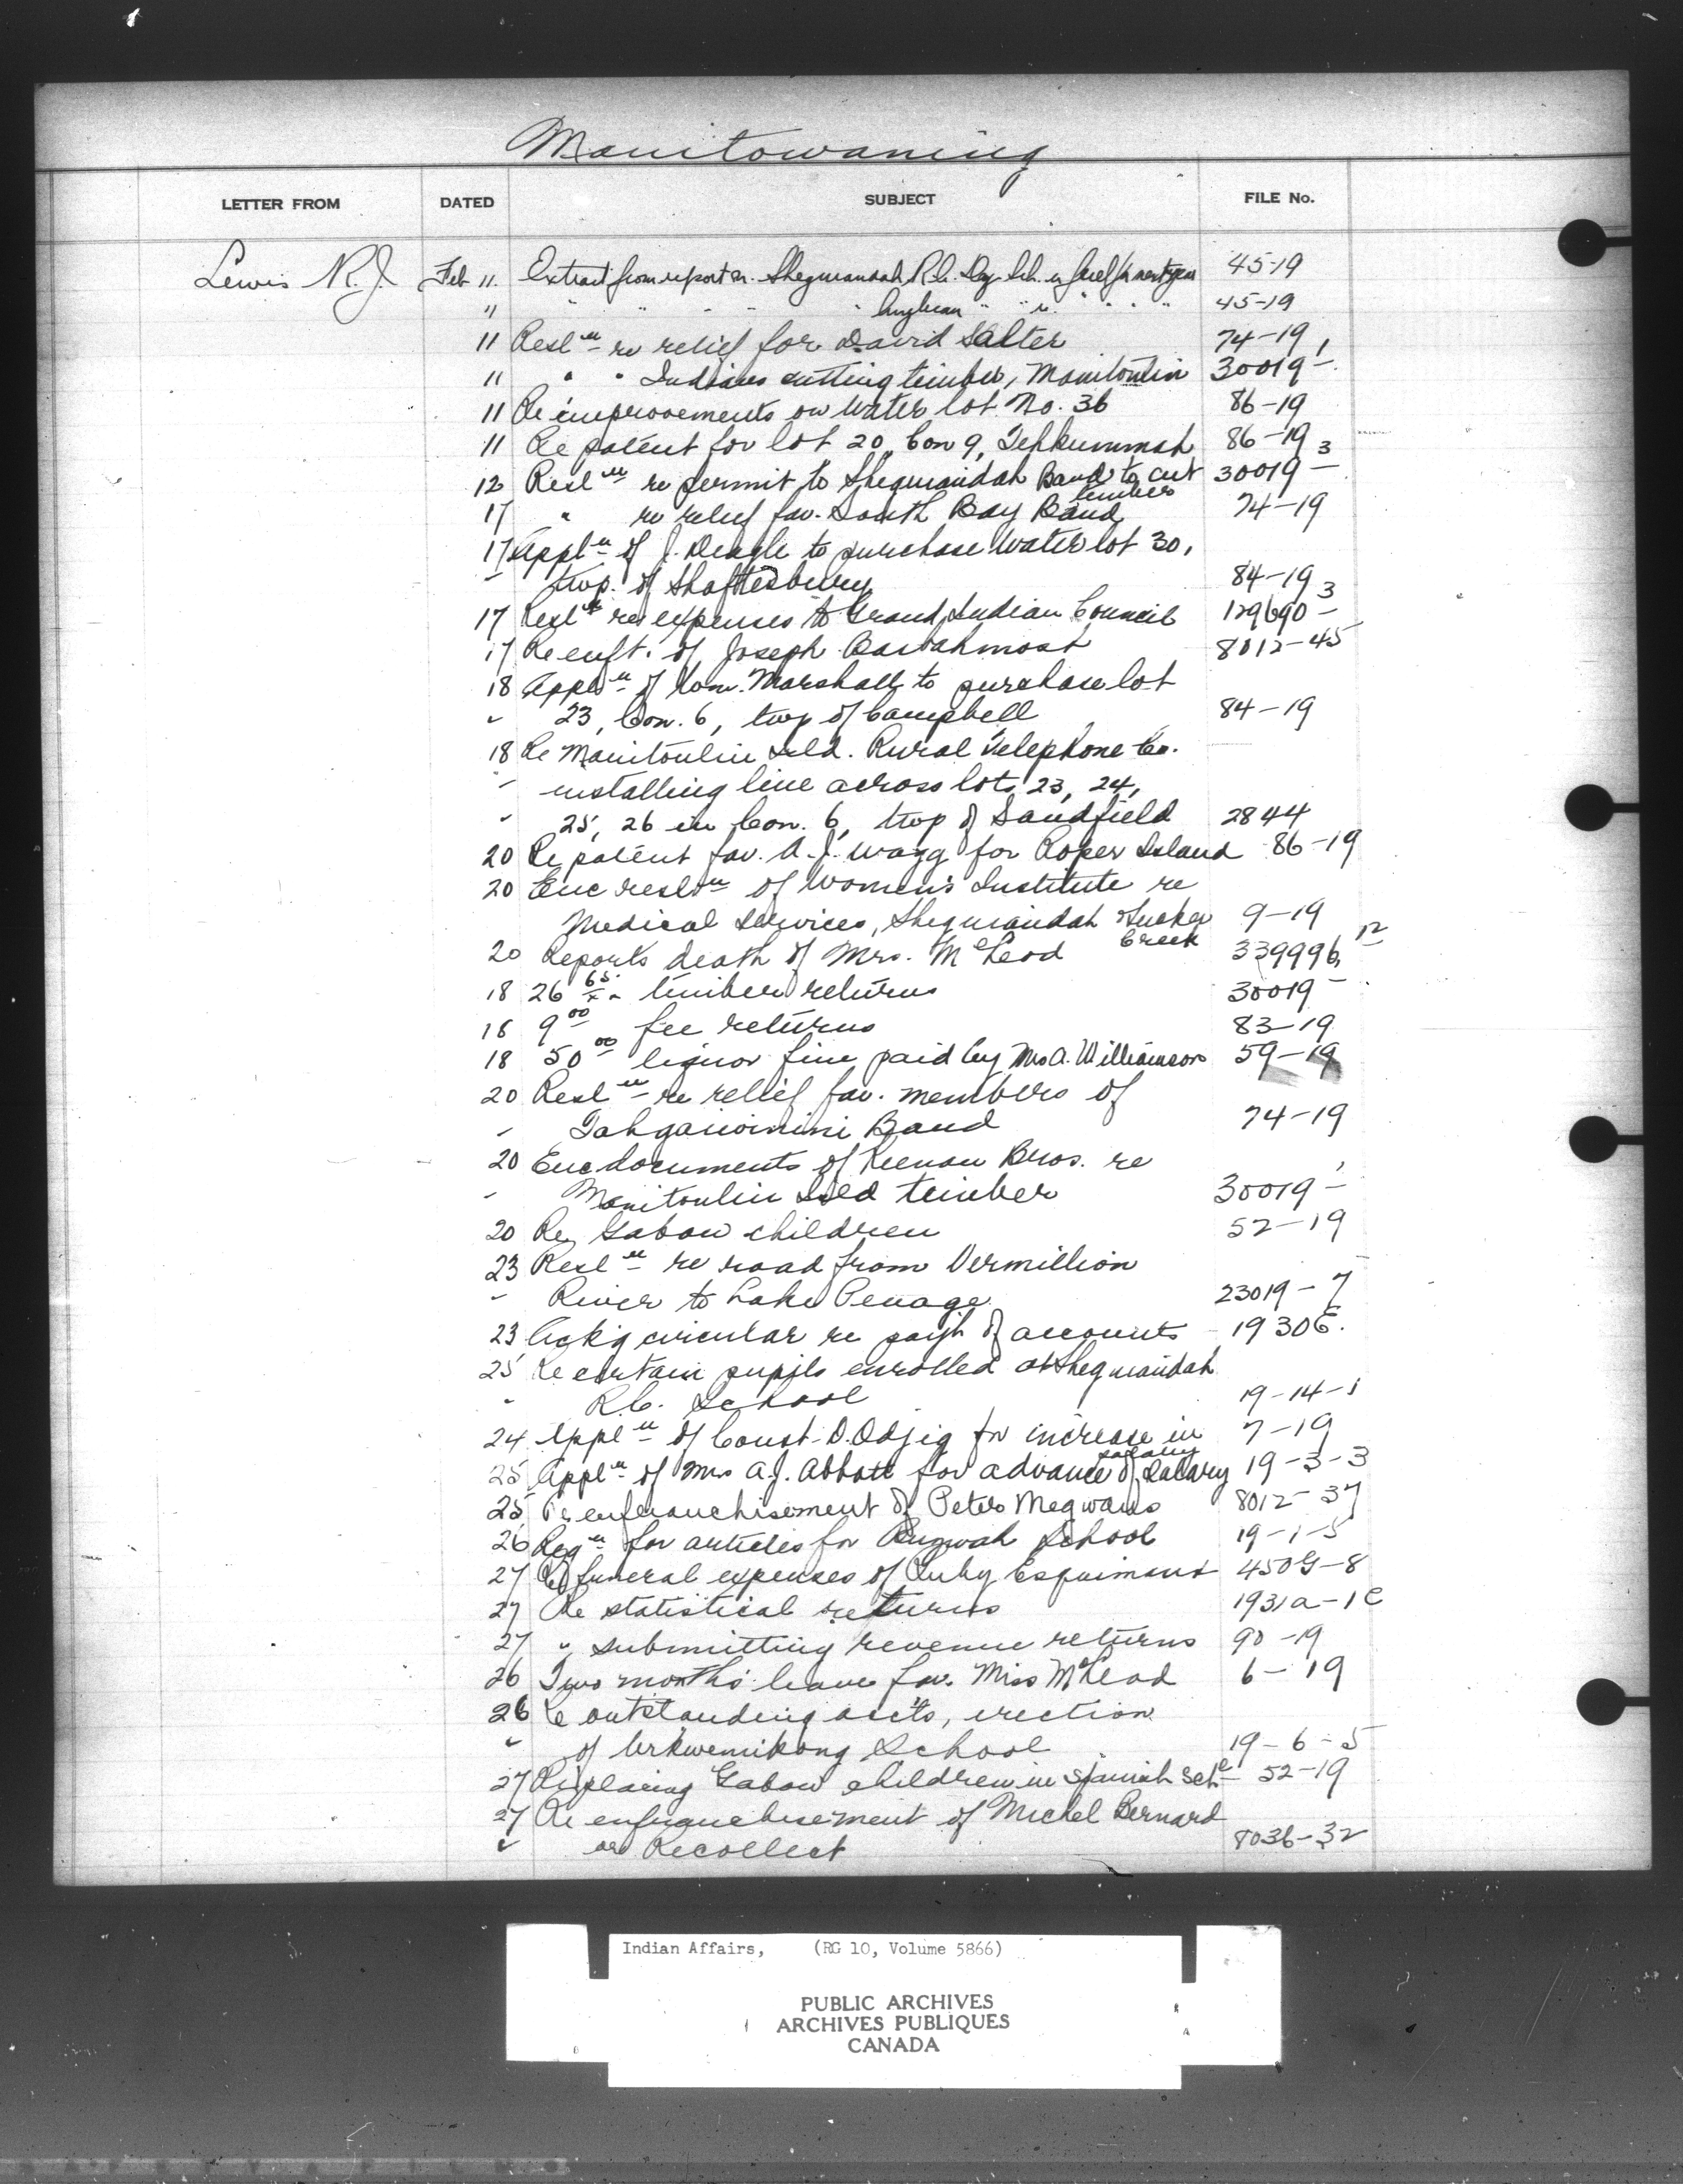 Manitowaning
LETTER FROM DATED SUBJECT FILE No.
Lewis R.J. Feb 11. Extract from report re. Sheguiandah R.C. Day Sch. re fuel for next year 45-19
" " " " " " Anglican " " re. " " " " 45-19
11 Resl'n re relief for David Salter 74-19
11 " " Indians cutting timber, Manitoulin 30019-1
11 Re improvements on Water lot No. 36 86-19
11 Re patent for lot 20, Con 9, Tehkummah 86-19
12 Resl'n re permit to Sheguiandah Band to cut timber 30019-3
17 " re relief fav. South Bay Band 74-19
17 Appl'n of J. Deagle to purchase Water lot 30,
" twp. of Shaftesbury 84-19
17 Resl'n re expenses to Grand Indian Council 129690-3
17 Re enft. of Joseph 8012-45
18 Appl'n of Wm. Marshall to purchase lot
" 23, Con. 6, twp of Campbell 84-19
18 Re Manitoulin Isld. Rural Telephone Co.
" installing line across lots 23, 24,
" 25, 26 in Con. 6, twp of Sandfield 2844
20 Re patent fav. A.J. Wagg for Roper Island 86-19
20 Enc resl'n of Women's Institute re
Medical Services, Sheguiandah & Sucker Creek 9-19
20 Reports death of Mrs. McLeod 339996-12
18 26 65/xx timber returns 30019-
18 9 00 fee returns 83-19
18 50 00 liquor fine paid by Mrs A. Williamson 59-19
20 Resl'n re relief fav. members of
" Tahgaiwinini Band 74-19
20 Enc documents of Keenan Bros. re
" Manitoulin Isld timber 30019-1
20 Re Gabow children 52-19
23 Resl'n re road from Vermillion
" River to Lake Penage 23019-7
23 Ackg circular re payt of accounts 1930E.
25 Re certain pupils enrolled at Sheguiandah
" R.C. School 19-14-1
24 Appl'n of Const. D. Odjig for increase in salary 7-19
25 Appl'n of Mrs A.J. Abbott for advance of Salary 19-3-3
25 Re enfranchisement of Peter Megwans 8012-37
26 Reqn for articles for School 19-1-5
27 Re funeral expenses of Ruby Esquimaux 450G-8
27 Re statistical returns 1931a-1C
27 " submitting revenue returns 90-19
26 Two months' leave fav. Miss McLeod 6-19
26 Re outstanding accts, erection
" of Wikwemikong School 19-6-5
27 Re placing Gabow children in Spanish Schl 52-19
27 Re enfranchisement of Michel Bernard
" or Recollect 8036-32
Indian Affairs, (RG 10, Volume 5866)
PUBLIC ARCHIVES
ARCHIVES PUBLIQUES
CANADA